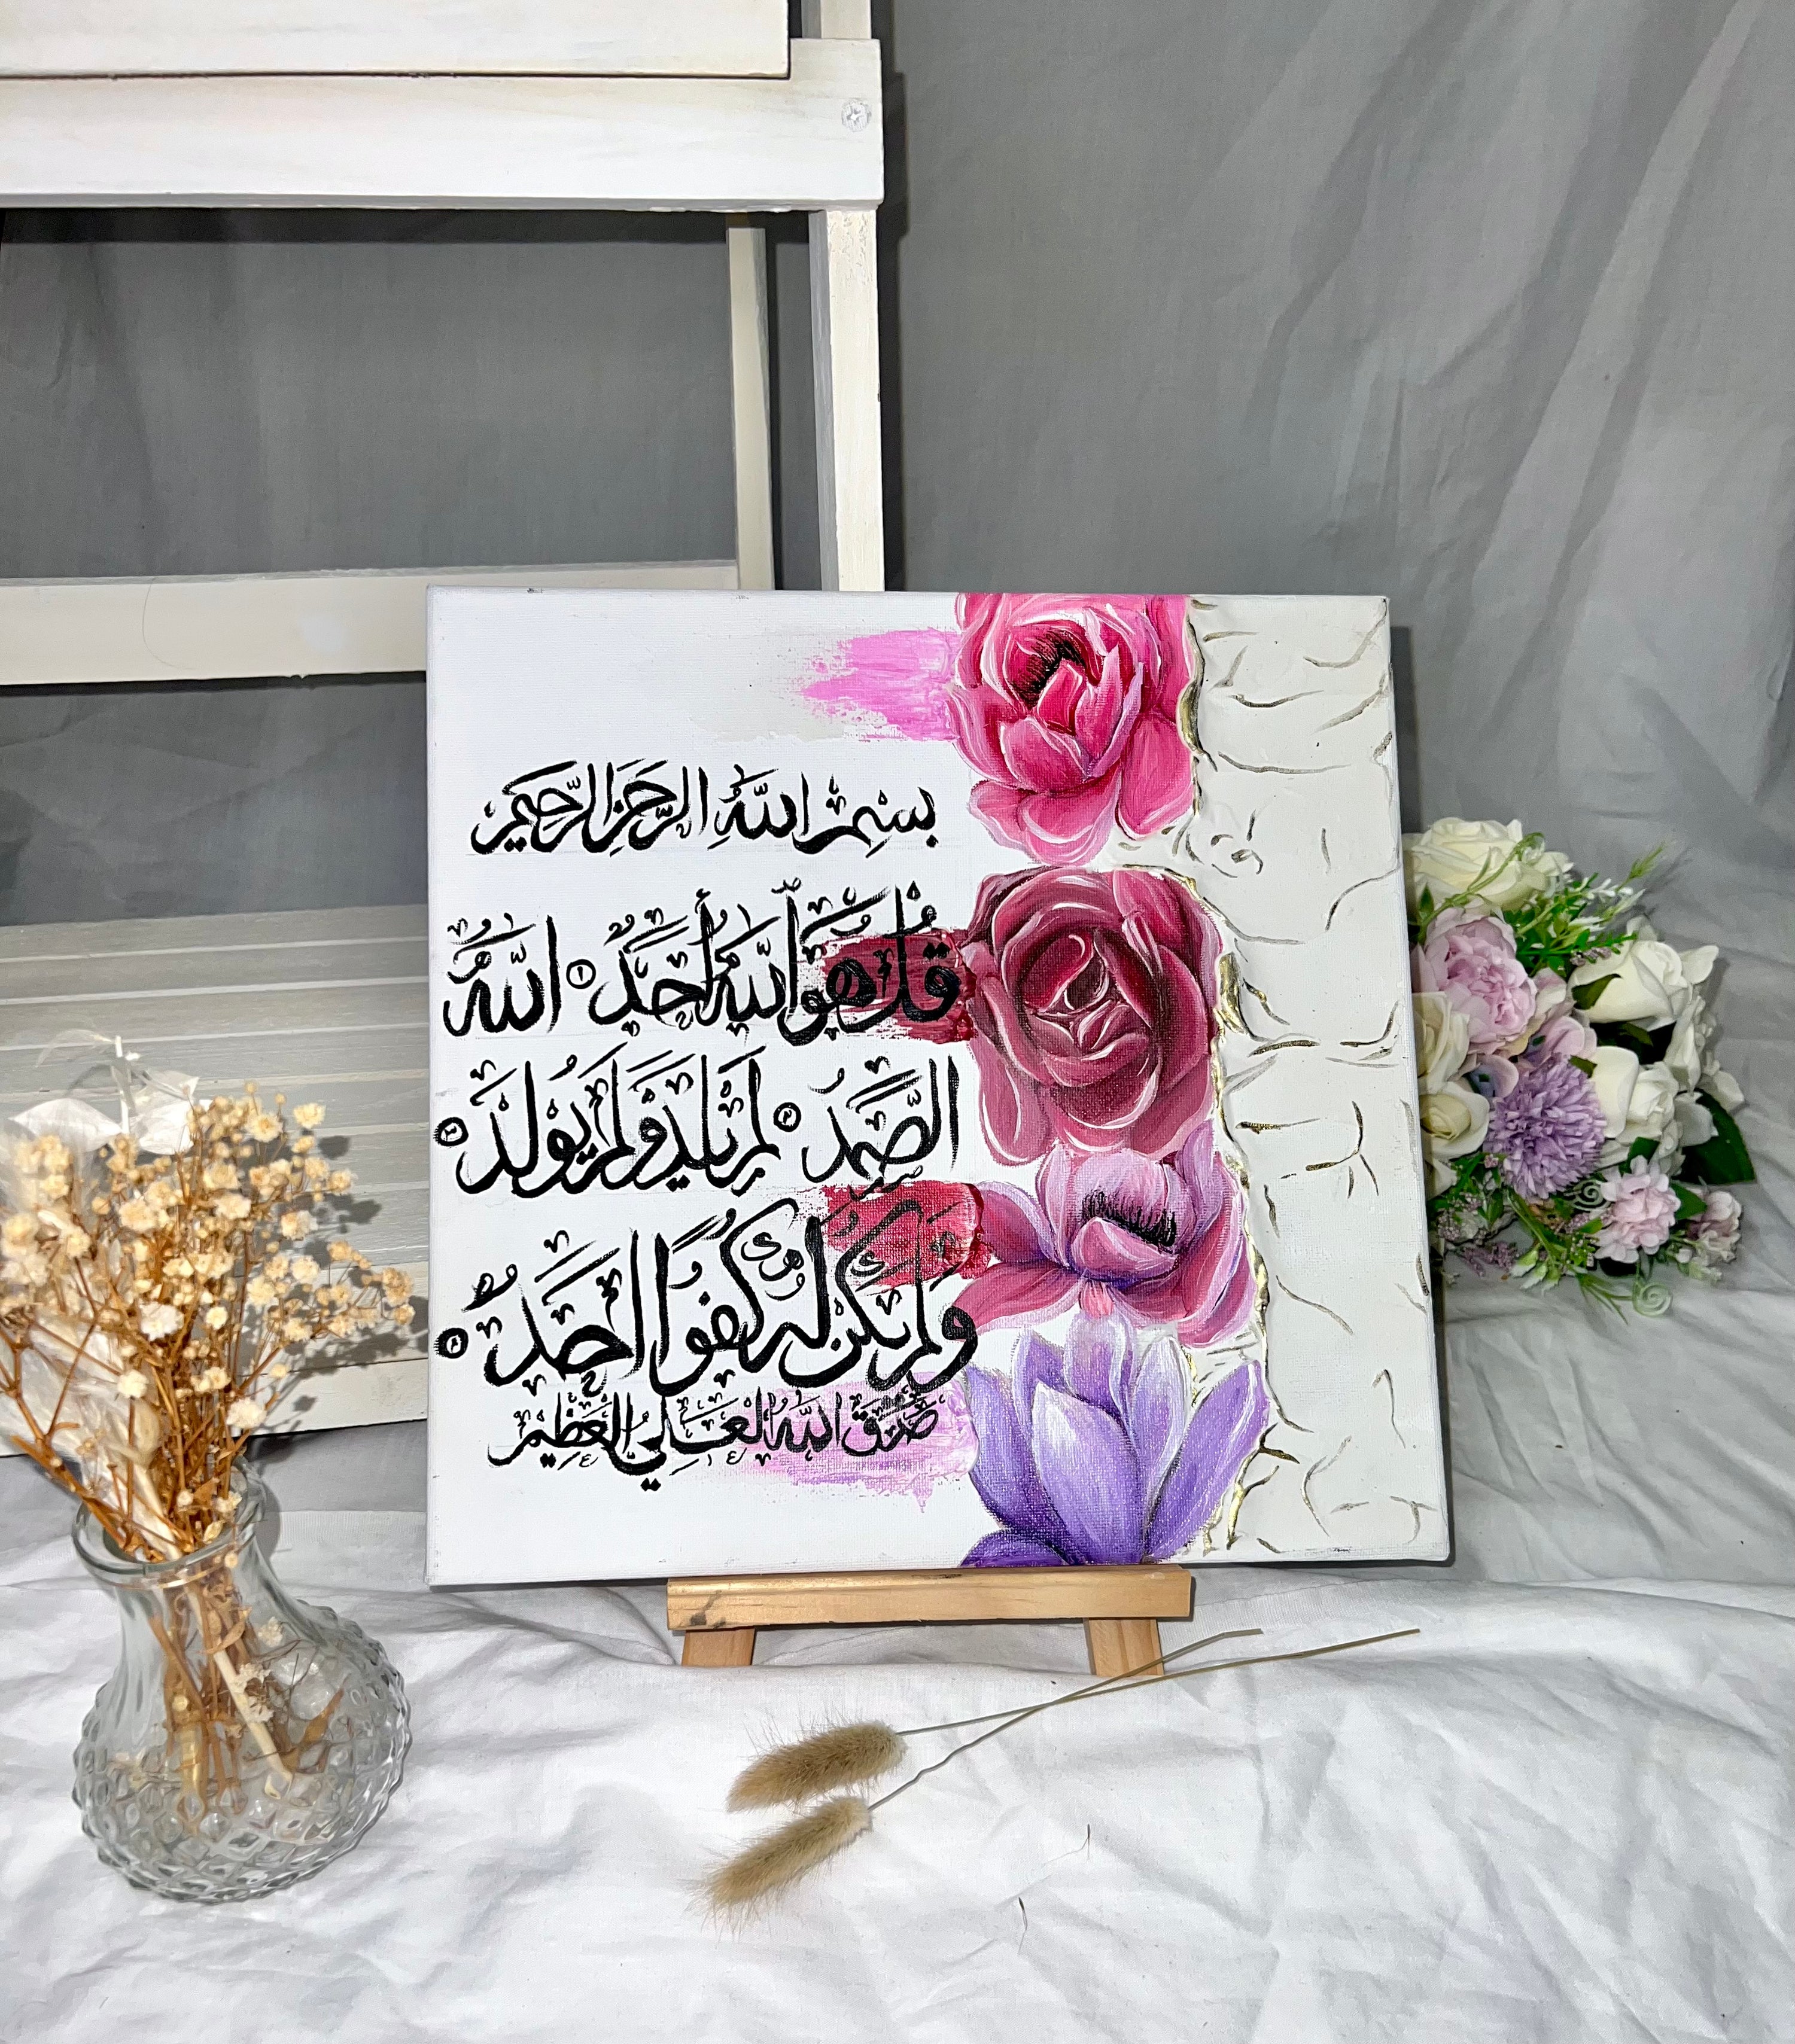 بِسْمِ اللَّهِ الرَّحْمَٰنِ الرَّحِيمِ
قُلْ هُوَ اللَّهُ أَحَدٌ ١ اللَّهُ
الصَّمَدُ ٢ لَمْ يَلِدْ وَلَمْ يُولَدْ ٣
وَلَمْ يَكُنْ لَهُ كُفُوًا أَحَدٌ ٤
صَدَقَ اللَّهُ الْعَلِيُّ الْعَظِيمُ